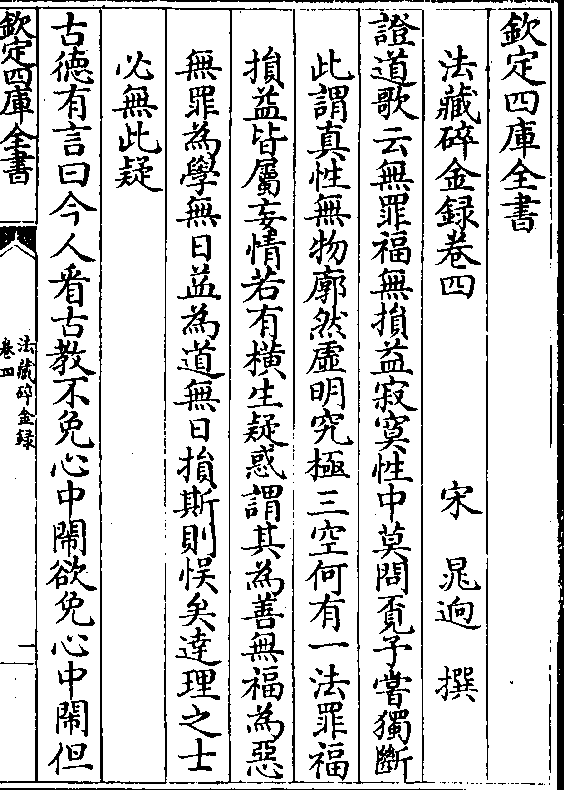 欽定四庫全書
法藏碎金録卷四
宋 晁迥 撰
證道歌云無罪福無損益寂寞性中莫問覔予嘗獨斷
此謂真性無物廓然虛明究極三空何有一法罪福
損益皆屬妄情若有横生疑惑謂其為善無福為惡
無罪為學無日益為道無日損斯則悮矣達理之士
必無此疑
古德有言曰今人看古教不免心中鬧欲免心中鬧但
欽定四庫全書
法藏碎金録
卷四
一